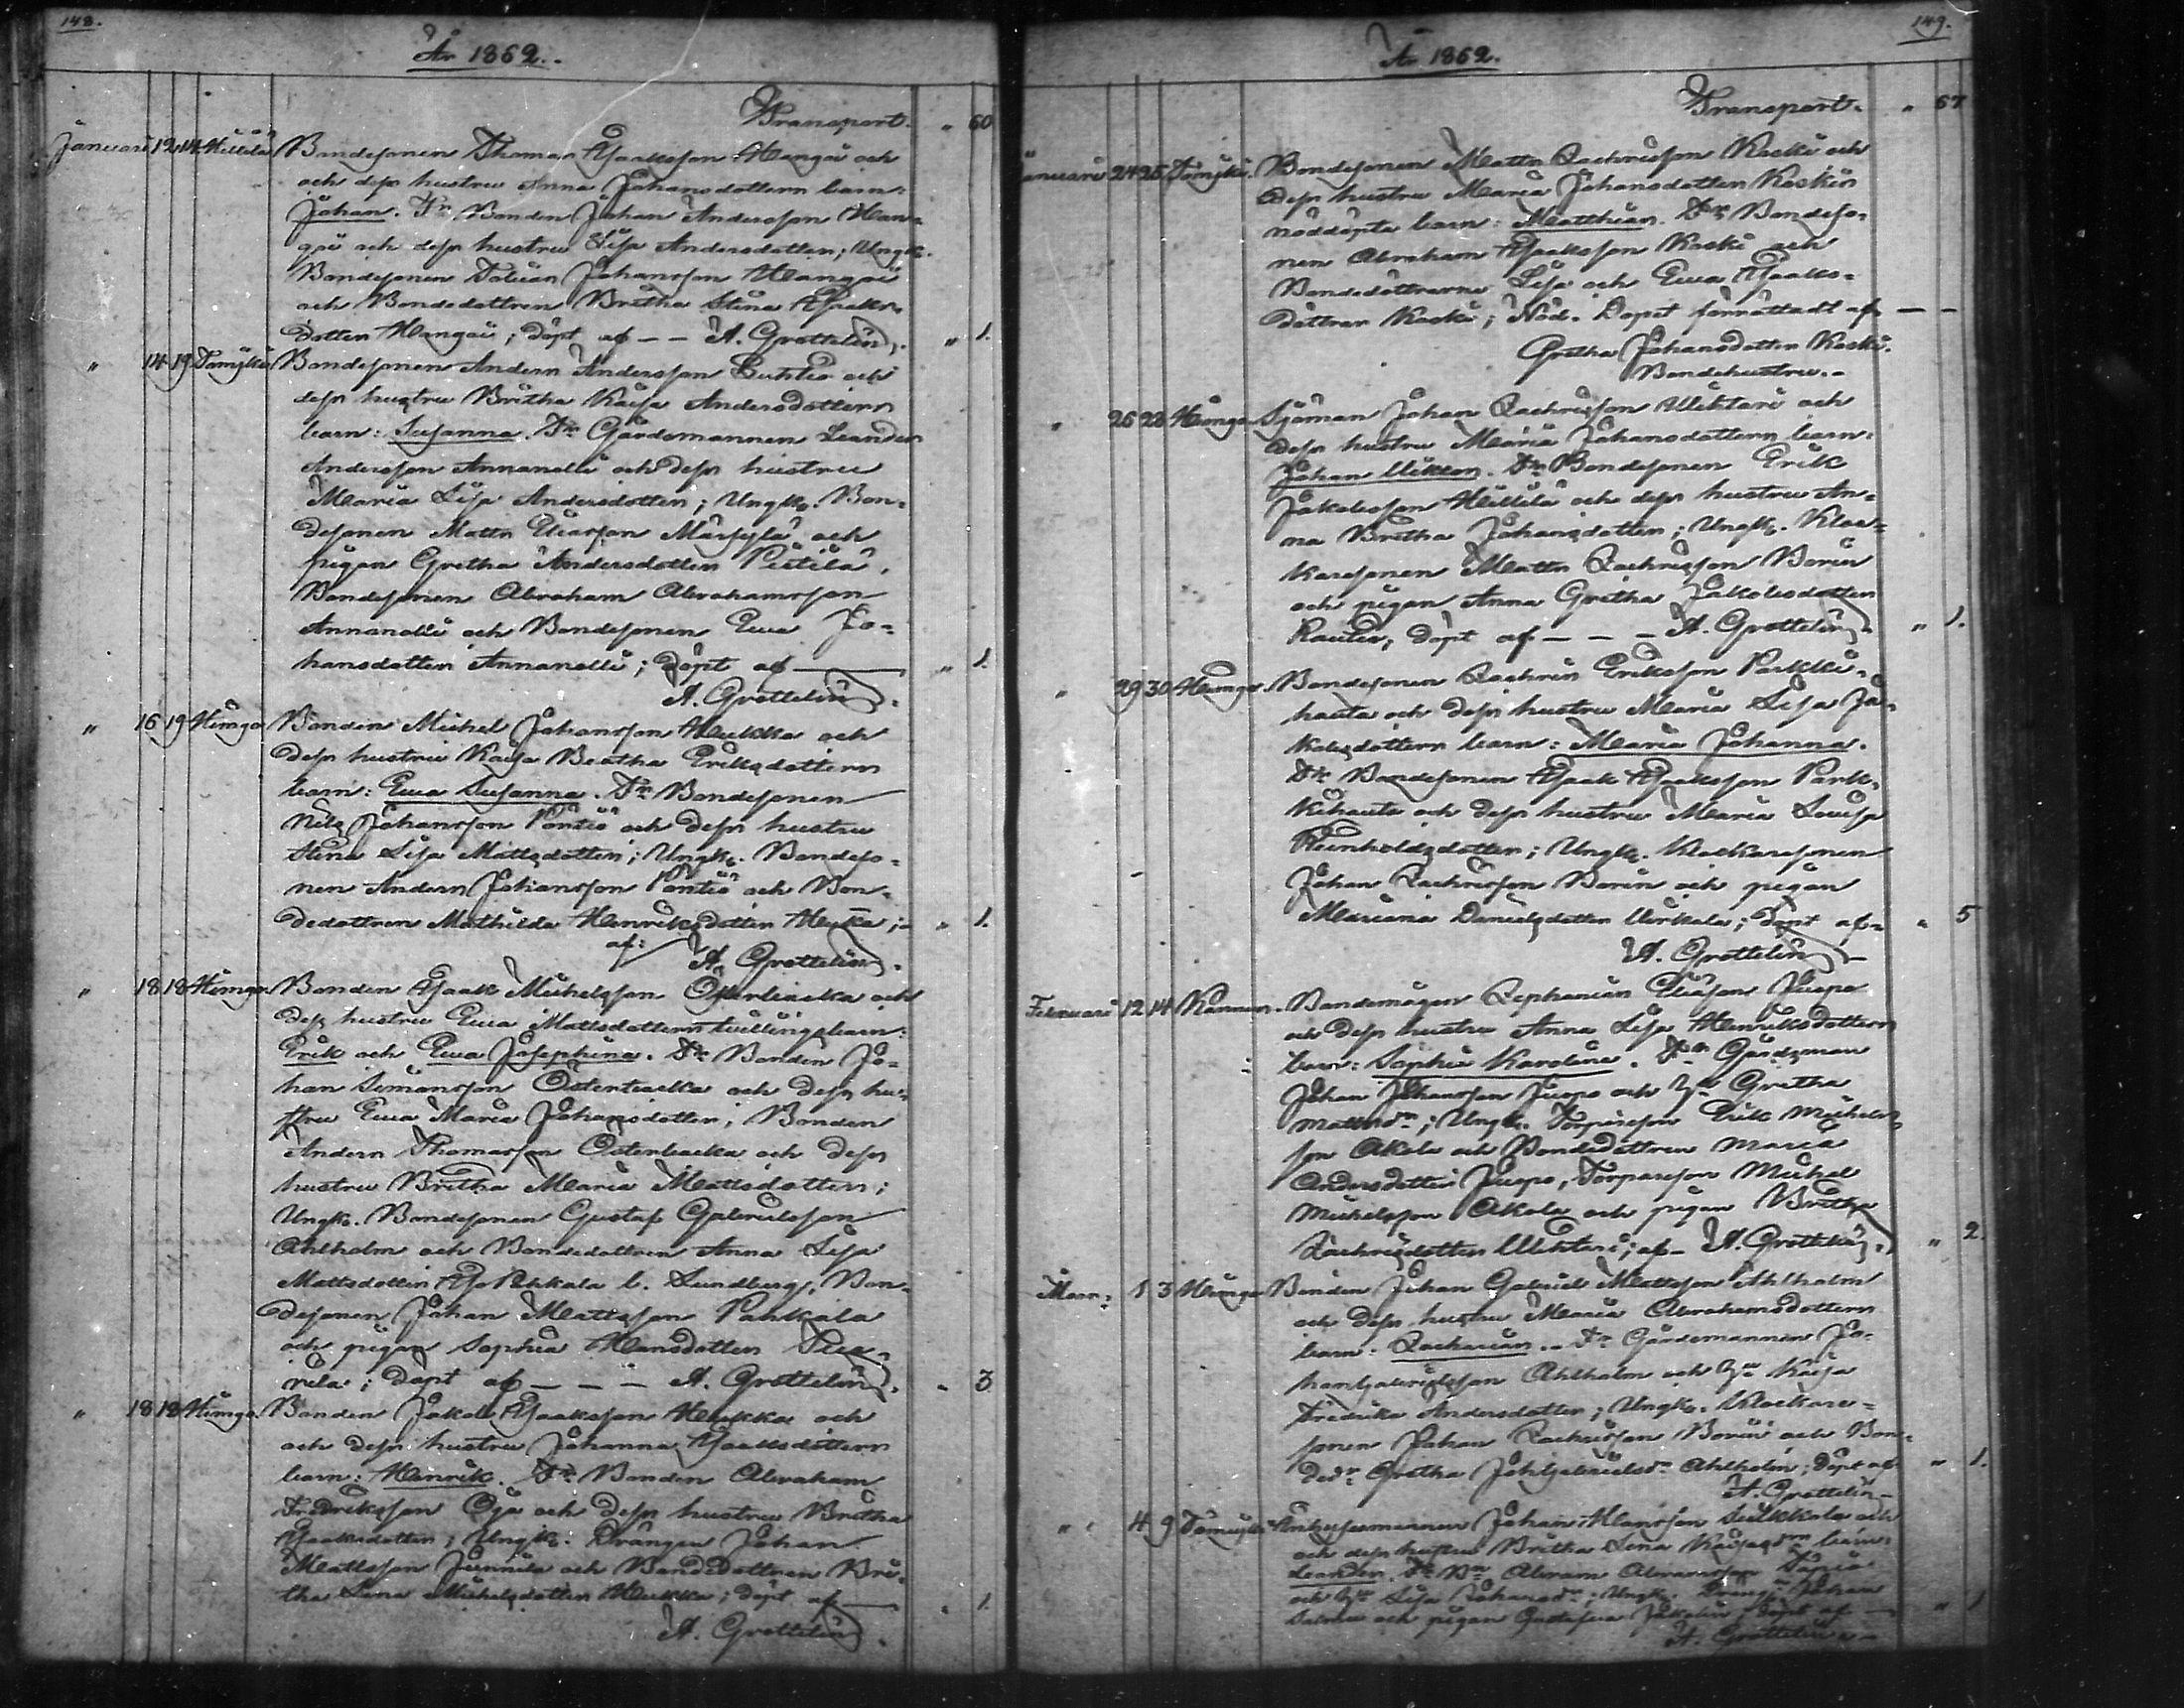 148.
År 1862.
Transport. " 60
Januari 12 14 Hillilä Bondesonen Thomas Isaaksson Hangai och
och dess hustru Anna Johansdotters barn:
Johan. Fr. Bonden Johan Andersson Han=
gai och dess hustru Lisa Andersdotter; Ungk.
Bondesonen Tobias Johansson Hangai
och Bondedottren Britha Stina Isaaks
dotter Hangai; döpt af - - A. Grottelin. " 1.
" 14 19 Tomujoki Bondesonen Anders Andersson Luhtio och
dess hustru Britha Kaisa Andersdotters
barn: Susanna. Fr. Gårdsmannen Leander
Andersson Annanolli och dess hustru
Maria Lisa Andersdotter; Ungk. Bon=
desonen Matts Eliasson Märsylä och
pigan Gretha Andersdotter Pistilä,
Bondesonen Abraham Abrahamsson
Annanolli och Bondesonen Ewa Jo=
hansdotter Annanolli; döpt af — " 1.
A. Grottelin.
" 16 19 Himga Bonden Michel Johansson Hukka och
dess hustru Kaisa Beatha Eriksdotters
barn: Ewa Susanna. Fr. Bondesonen
Nils Johansson Pöntiö och dess hustru
Stina Lisa Mattsdotter; Ungk. Bondeso=
nen Anders Johansson Pöntiö och Bon=
dedottren Mathilda Henriksdotter Hukka; " 1.
af: A. Grottelin.
" 18 18 Himga. Bonden Isaak Michelsson Österbacka och
dess hustru Ewa Mattsdotters tvillingsbarn:
Erik och Ewa Josephina. Fr. Bonden Jo=
han Simonsson Österbacka och dess hu=
stru Ewa Maria Johansdotter; Bonden
Anders Thomasson Österbacka och dess
hustru Britha Maria Mattsdotter;
Ungk. Bondesonen Gustaf Gabrielsson
Ahlholm och Bondedottren Anna Lisa
Mattsdotter Pahkala l. Lundberg, Bon=
desonen Johan Mattsson Pahkala
och pigan Sophia Hansdotter
döpt af - - - A. Grottelin. " 3
" 18 18 Himga. Bonden Jakob Isaaksson Hukka och
och dess hustru Johanna Isaaksdotters
barn: Henrik. Fr. Bonden Abraham
Fredriksson Oja och dess hustru Britha
Isaaksdotter; Ungk. Drängen Johan
Mattsson Junnila och Bondedottren Bri=
tha Lena Michelsdotter Hukka; döpt af — " 1.
A. Grottelin.
149.
År 1862.
Transport. " 67
Januari 24 25 Tomujoki. Bondesonen Matts Zachrisson Koski och
dess hustru Maria Johansdotter Koskis
nöddöpta barn: Matthias. Fr. Bondeso=
nen Abraham Isaaksson Koski och
Bondedöttrarne Lisa och Ewa Isaaks=
döttrar Koski; Nöd. Dopet förrättadt af — —
Gretha Johansdotter Koski.
Bondehustru.
" 26 28 Himga Sjöman Johan Zachrisson Uiktari och
dess hustru Maria Johansdotters barn:
Johan Wiktor. Fr. Bondesonen Erik
Jakobsson Hillilä och dess hustru An=
na Britha Johansdotter; Ungk. Kloc=
karesonen Matts Zachrisson Borin
och pigan Anna Gretha Jakobsdotter
Rautio; döpt af - - - A. Grottelin. " 1.
" 29 30 Himga. Bondesonen Zachris Eriksson Parkki=
hauta och dess hustru Maria Lisa Ja=
kobsdotters barn: Maria Johanna.
Fr. Bondesonen Isaak Isaaksson Park=
kihauta och dess hustru Maria Lovisa
Reinholdsdotter; Ungk. Klockaresonen
Johan Zachrisson Borin och pigan
Mariana Danielsdotter Uirkala; döpt af= " 5
A. Grottelin
Februari 12 14 Kannus. Bondemågen Zephanias Eliasson Juopo
och dess hustru Anna Lisa Henriksdotters
barn: Sophia Karolina. Fr. Gårdsman
Johan Johansson Juopo och h:u Gretha
Mattsdr; Ungk. Torpareson Erik Michels
son Akola och Bondedottren Maria
Andersdotter Juopo, Torpareson Michel
Michelsson Akola och pigan Britha
Zachrisdotter Uiktari; af - A. Grottelin. " 2.
Mars: 1 3 Himga Bonden Johan Gabriel Mattsson Ahlholm
och dess hustru Maria Abrahamsdotters
barn: Zacharias. Fr. Gårdsmannen Jo=
han Gabrielsson Ahlholm och h:u Kaisa
Fredrika Andersdotter; Ungk. Klockare=
sonen Johan Zachrisson Borin och Bon=
dedr. Gretha Joh. Gabrielsdr Ahlholm; döpt af " 1.
A. Grottelin
" 4 9 Tomujoki Johan Hansson Suikkola och
och dess hustru Britha Lena barn:
Leander. Fr. Abram Abramsson
och h:u Lisa Johansdr; Ungk. Johan
och pigan Gustafva döpt af — " 1
A. Grottelin